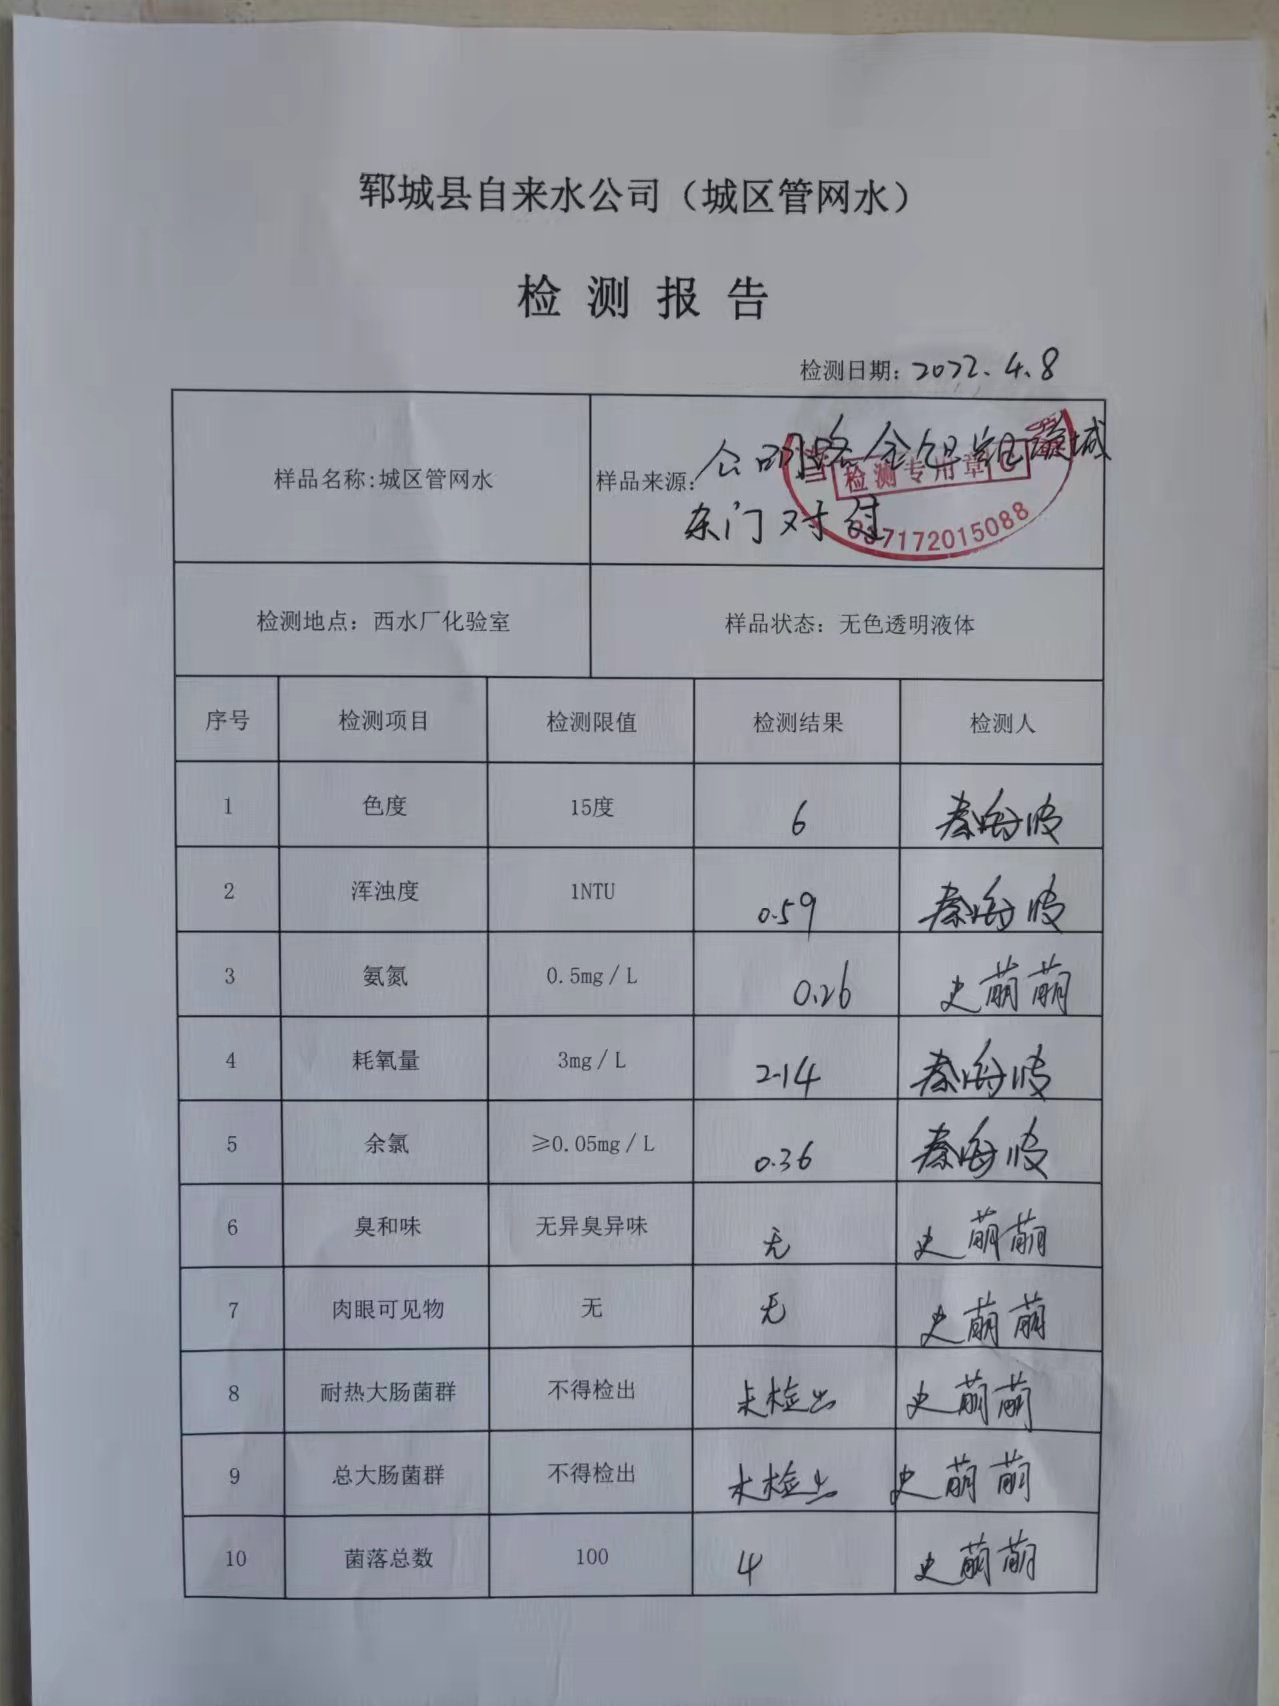 郓城县自来水公司（城区管网水）
检测报告
检测日期: 2022.4.8
样品名称:城区管网水
样品来源:
东门对过
检测专用章
7172015088
检测地点：西水厂化验室
样品状态：无色透明液体
序号 检测项目 检测限值 检测结果 检测人
1 色度 15度 6 秦海波
2 浑浊度 1NTU 0.59 秦海波
3 氨氮 0.5mg/L 0.26 史萌萌
4 耗氧量 3mg/L 2.14 秦海波
5 余氯 ≥0.05mg/L 0.36 秦海波
6 臭和味 无异臭异味 无 史萌萌
7 肉眼可见物 无 无 史萌萌
8 耐热大肠菌群 不得检出 未检出 史萌萌
9 总大肠菌群 不得检出 未检出 史萌萌
10 菌落总数 100 4 史萌萌